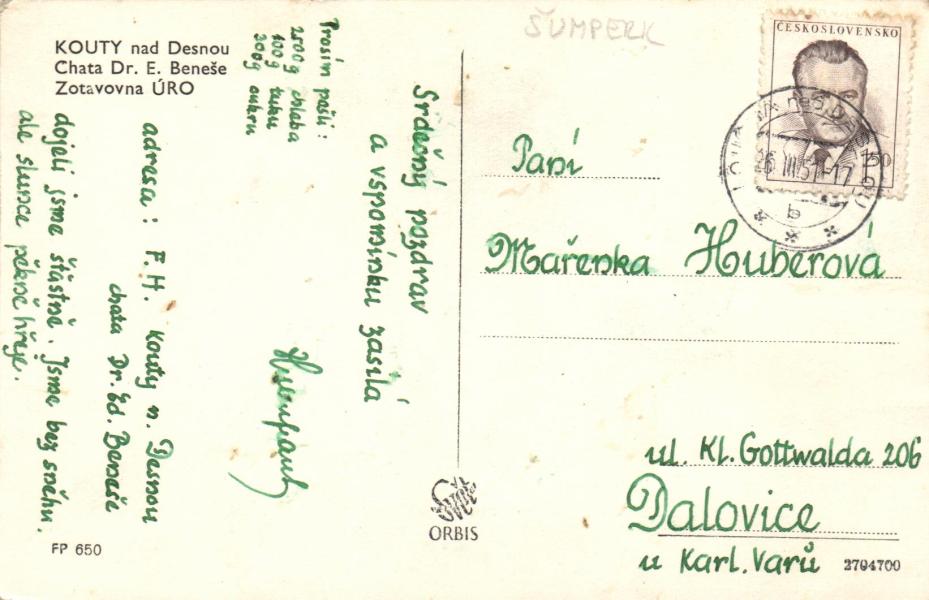 KOUTY nad Desnou
Chata Dr. E. Beneše
Zotavovna ÚRO
Prosím pošli:
2500g chleba
400g tuku
300g cukru
Srdečný pozdrav
a vzpomínku zasílá
adresa: F. H. Kouty n. Desnou
chata Dr. Ed. Beneše
dojeli jsme šťastně. Jsme bez sněhu.
ale slunce pěkně hřeje.
FP 650
ORBIS
ŠUMPERK
ČESKOSLOVENSKO
1.50
b
Paní
Mařenka Huberová
ul. Kl. Gottwalda 206
Dalovice
u Karl. Varů
2704700